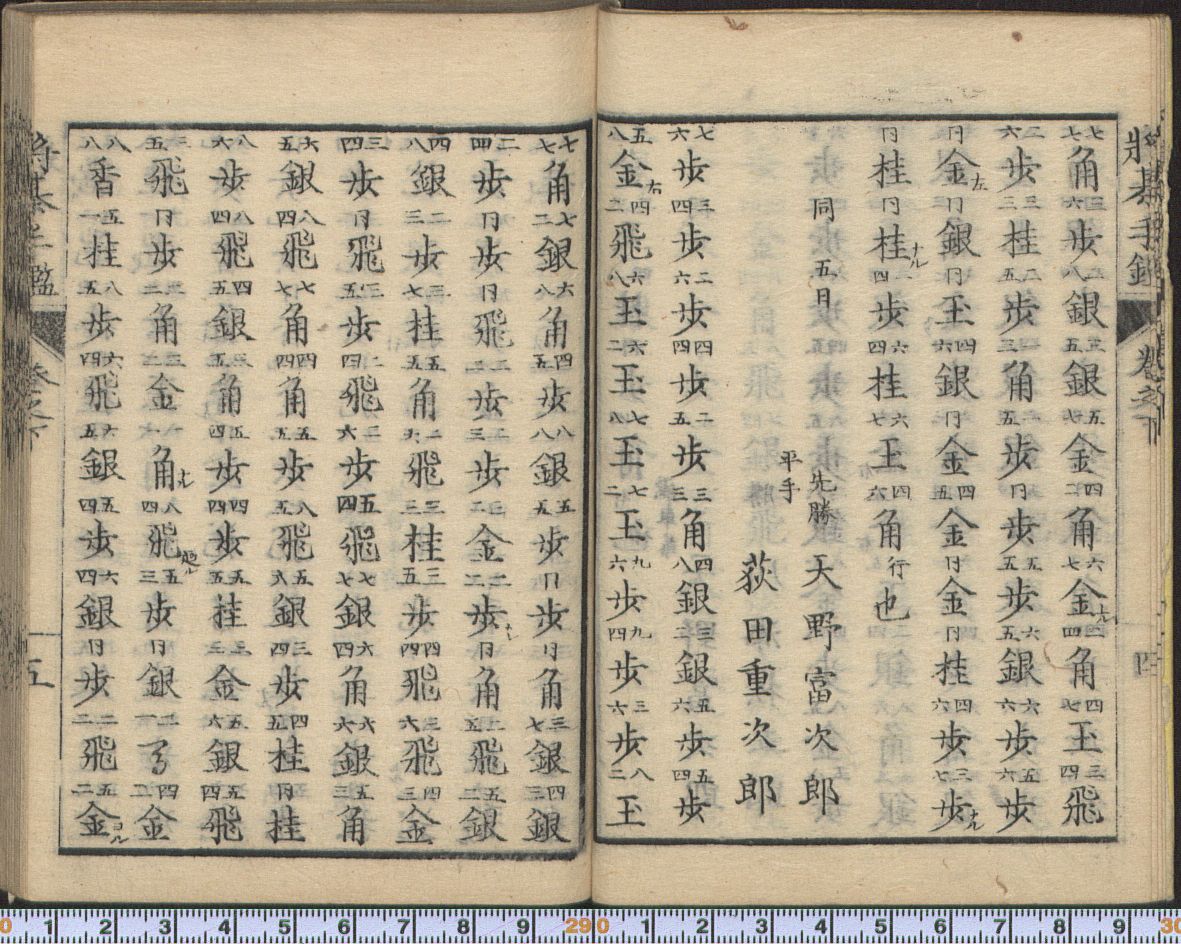 将棊手鑑 巻之下 四
七七角 三六歩 銀 銀 五七金 四二角 六七金上 角 四七玉 三四飛
二六歩 三三桂 二五歩 三角 五歩 同歩 五五歩 六五銀 六六歩 五六歩
同金左 同銀 同玉 四六銀 同金 四五金 同金 同桂 四六歩 三七歩ナル
同桂 同桂ナル 四歩 六四桂 六七王 四六角 行也
同五日
平手
先勝 天野富次郎
荻田重次郎
七六歩 三四歩 二六歩 四四歩 二五歩 三三角 四八銀 三二銀 五六歩 五四歩
五八金右 四二飛 六八玉 六二玉 七八玉 七二玉 九六歩 九四歩 三六歩 八二玉
七七角 七二銀 六八角 四五歩 八八銀 五五歩 同歩 同角 三七銀 四三銀
二四歩 同歩 同飛 歩 歩 金 歩 同角 飛 五二銀
四八銀 二三歩 二七桂 五五角 二六飛 三三桂 三五歩 四四飛 三六飛 四三金
三四歩 同飛 三五歩 二四飛 二六歩 五四飛 七七銀 六四角 六六銀 五三角
六五銀 八四飛 七七角 四四角 五五歩 八五飛 五八銀 三四歩 四五桂 同桂
八六歩 八四飛 四五銀 三五角 五四歩 四四歩 五五桂 三三金 五六銀 五四飛
三五飛 同歩 二二角 三二金 角ナル 八四飛 五三歩 同銀 金
八八香 五一桂 八五歩 六四飛 六五銀 五四歩 六四銀 同歩 二二飛 五二金ヨル
将棊手鑑 巻之下 五